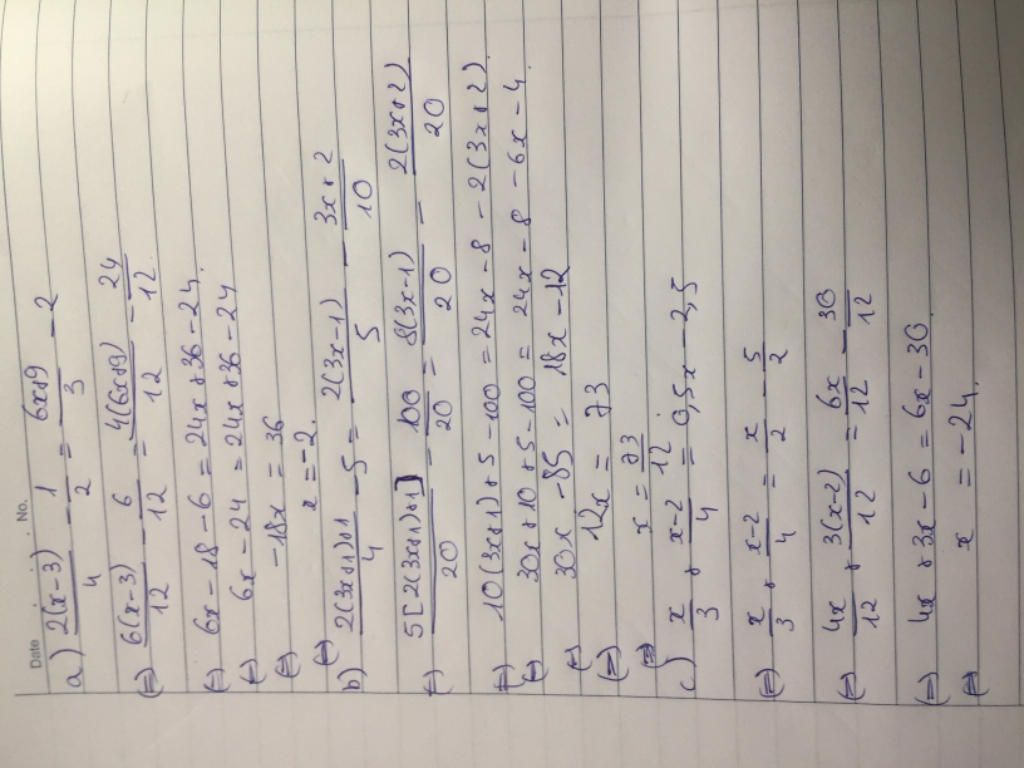 Date No.
a) 2(x-3)/4 - 1/2 = 6x+9/3 - 2
(=) 6(x-3)/12 - 6/12 = 4(6x+9)/12 - 24/12.
(=) 6x-18-6 = 24x+36-24.
(=) 6x-24 = 24x+36-24
(=) -18x = 36
(=) x=-2.
b) 2(3x+1)+1/4 -5 = 2(3x-1)/5 - 3x+2/10
(=) 5[2(3x+1)+1]/20 - 100/20 = 8(3x-1)/20 - 2(3x+2)/20
(=) 10(3x+1)+5-100 = 24x-8-2(3x+2)
(=) 30x+10+5-100 = 24x-8-6x-4.
(=) 30x-85 = 18x-12
(=) 12x = 73
(=) x = 73/12
c) x/3 + x-2/4 = 0,5x-2,5
(=) x/3 + x-2/4 = x/2 - 5/2
(=) 4x/12 + 3(x-2)/12 = 6x/12 - 30/12
(=) 4x+3x-6 = 6x-30.
(=) x = -24.